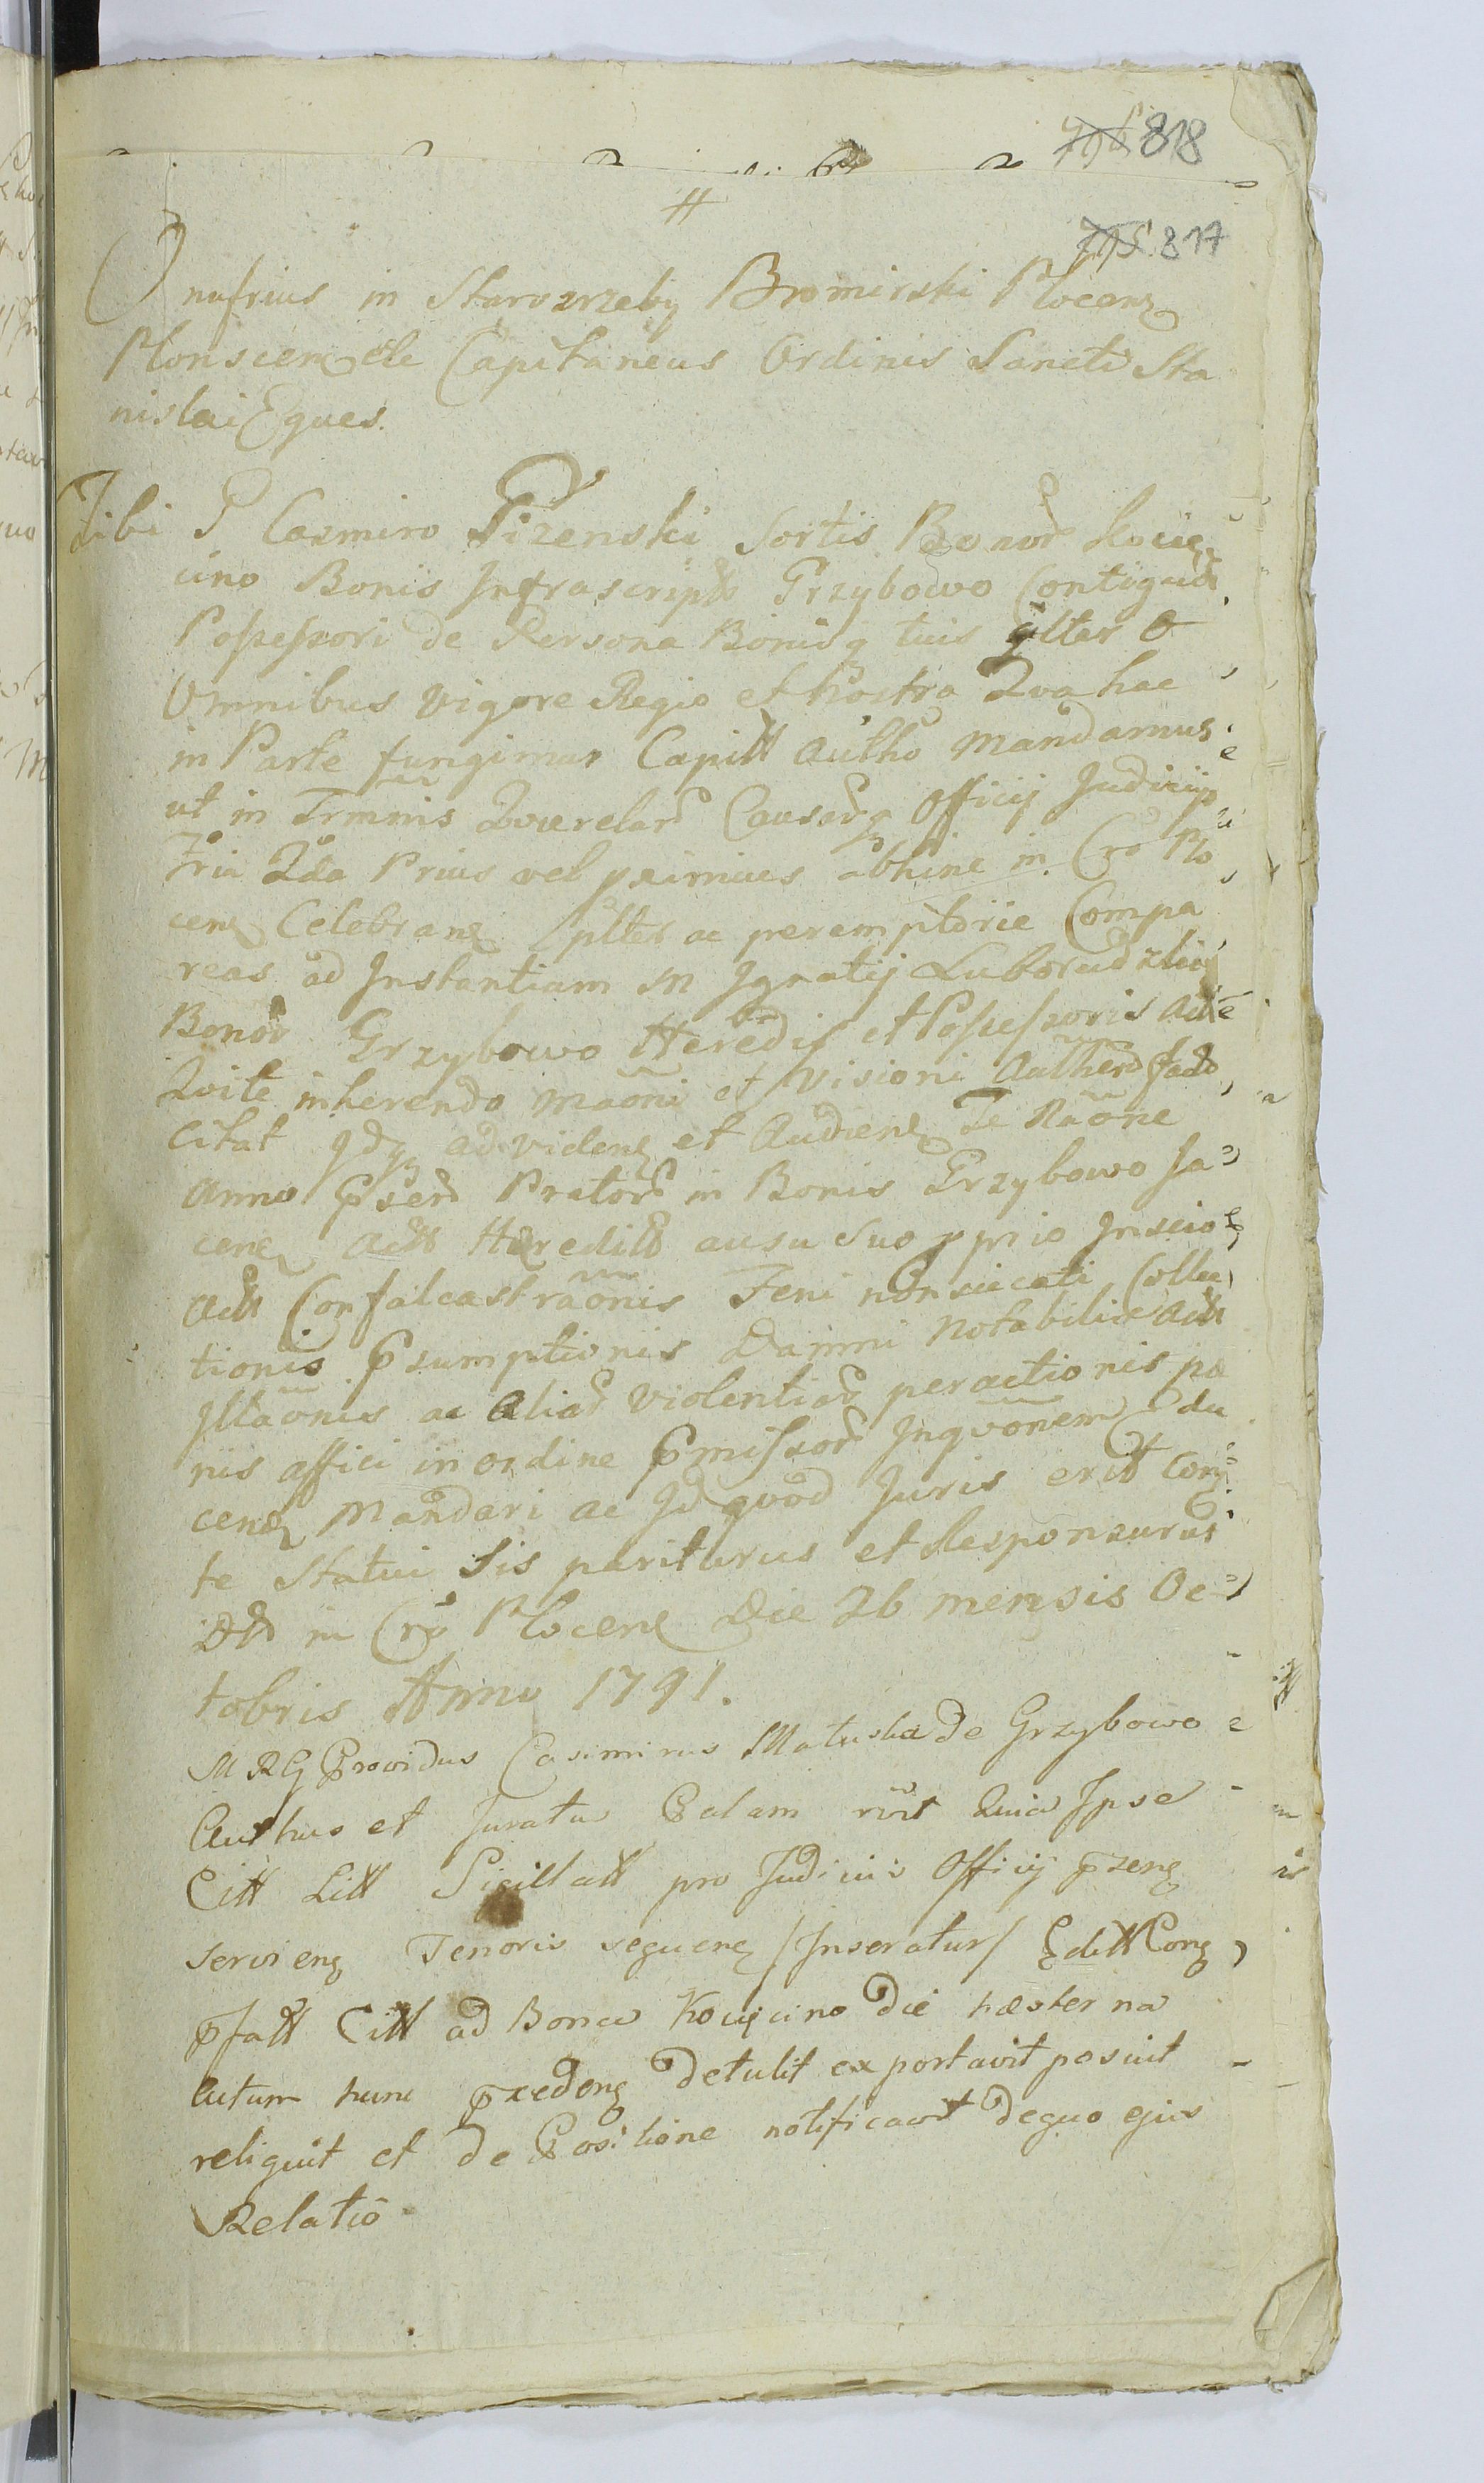 818
#
817
Onufrius in Starozrzeby Bromirski Plocens
Plonscens etc Capitaneus Ordinis Sancti Sta
nislai Eques.
Tibi G Casmiro Pizenski Sortis Bonor Kocię
cino Boniis Infrascript Grzybowo Contiguar
Possessori de Persona Bonisq tuis glter &
Omnibus vigore Regio et Nostra Qva hac
in Parte fungimur Capitt Autho Mandamus
ut in Trminis Qverelar Causarq Officij Judicij
Fria 2da Prius vel primius abhinc in Cro Plo
cens Celebrans Spltes ac peremptorie Compa
reas ad Instantiam M Ignatij Luboradzki
Bonor Grzybowo Heredis et Possessoris
Qvite inherendo maoni et Visioni
Citat Idq ad videns et Audiens Te Raone
Anno Psen Prator in Bonis Grzybowo Ja
cens actt Heredit ausu Suo pprio Inscio
actt Confalcastraonis Feni non siccati Collec
tionis Psumptionis Damni Notabilis actt
Illaonis ac aliar Violentiar peractionis pæ
nis affici in ordine Pmissor Inqvonem Edu
cens Mandari ac Id qvod Juris erit Con
te Statui Sis pariturus et Responsurus
Dtt in Cro Plocens Die 26 mensis Oc
tobris Anno 1791.
M R G Providus Casimirus Matuska de Grzybowo
Authus et Juratu Palam rvit Quia Ipse
Citt Litt Sigillatt pro Judicio Officij pzens
serviens Tenoris sequens /Inseratur/
pfatt Citt ad Bona Kocięcino Die hæsterna
Actum hunc Detulit exportavit posuit
reliquit et de Positione notificavit dequo ejus
Relatio